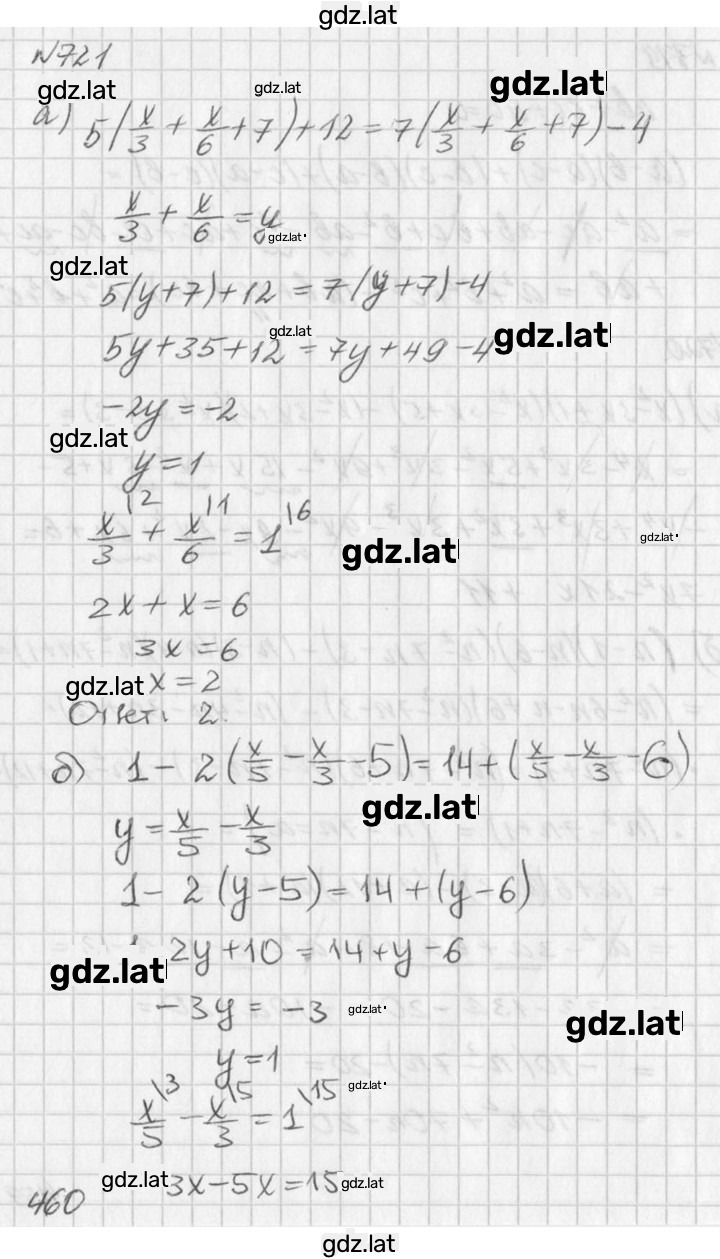 gdz.lat
№721
gdz.lat gdz.lat gdz.lat
а) 5(x/3 + x/6 + 7) + 12 = 7(x/3 + x/6 + 7) - 4
x/3 + x/6 = y
gdz.lat
gdz.lat
5(y+7)+12 = 7(y+7)-4
gdz.lat gdz.lat
5y+35+12 = 7y+49-4
-2y = -2
gdz.lat
y = 1
x/3 \2 + x/6 \1 = 1 \6
gdz.lat gdz.lat
2x + x = 6
3x = 6
gdz.lat x = 2
Ответ: 2.
б) 1 - 2(x/5 - x/3 - 5) = 14 + (x/5 - x/3 - 6)
gdz.lat
y = x/5 - x/3
1 - 2(y-5) = 14 + (y-6)
2y + 10 = 14 + y - 6
gdz.lat
-3y = -3 gdz.lat
gdz.lat
y = 1
gdz.lat
x/5 \3 - x/3 \5 = 1 \15
gdz.lat 3x - 5x = 15 gdz.lat
460
gdz.lat